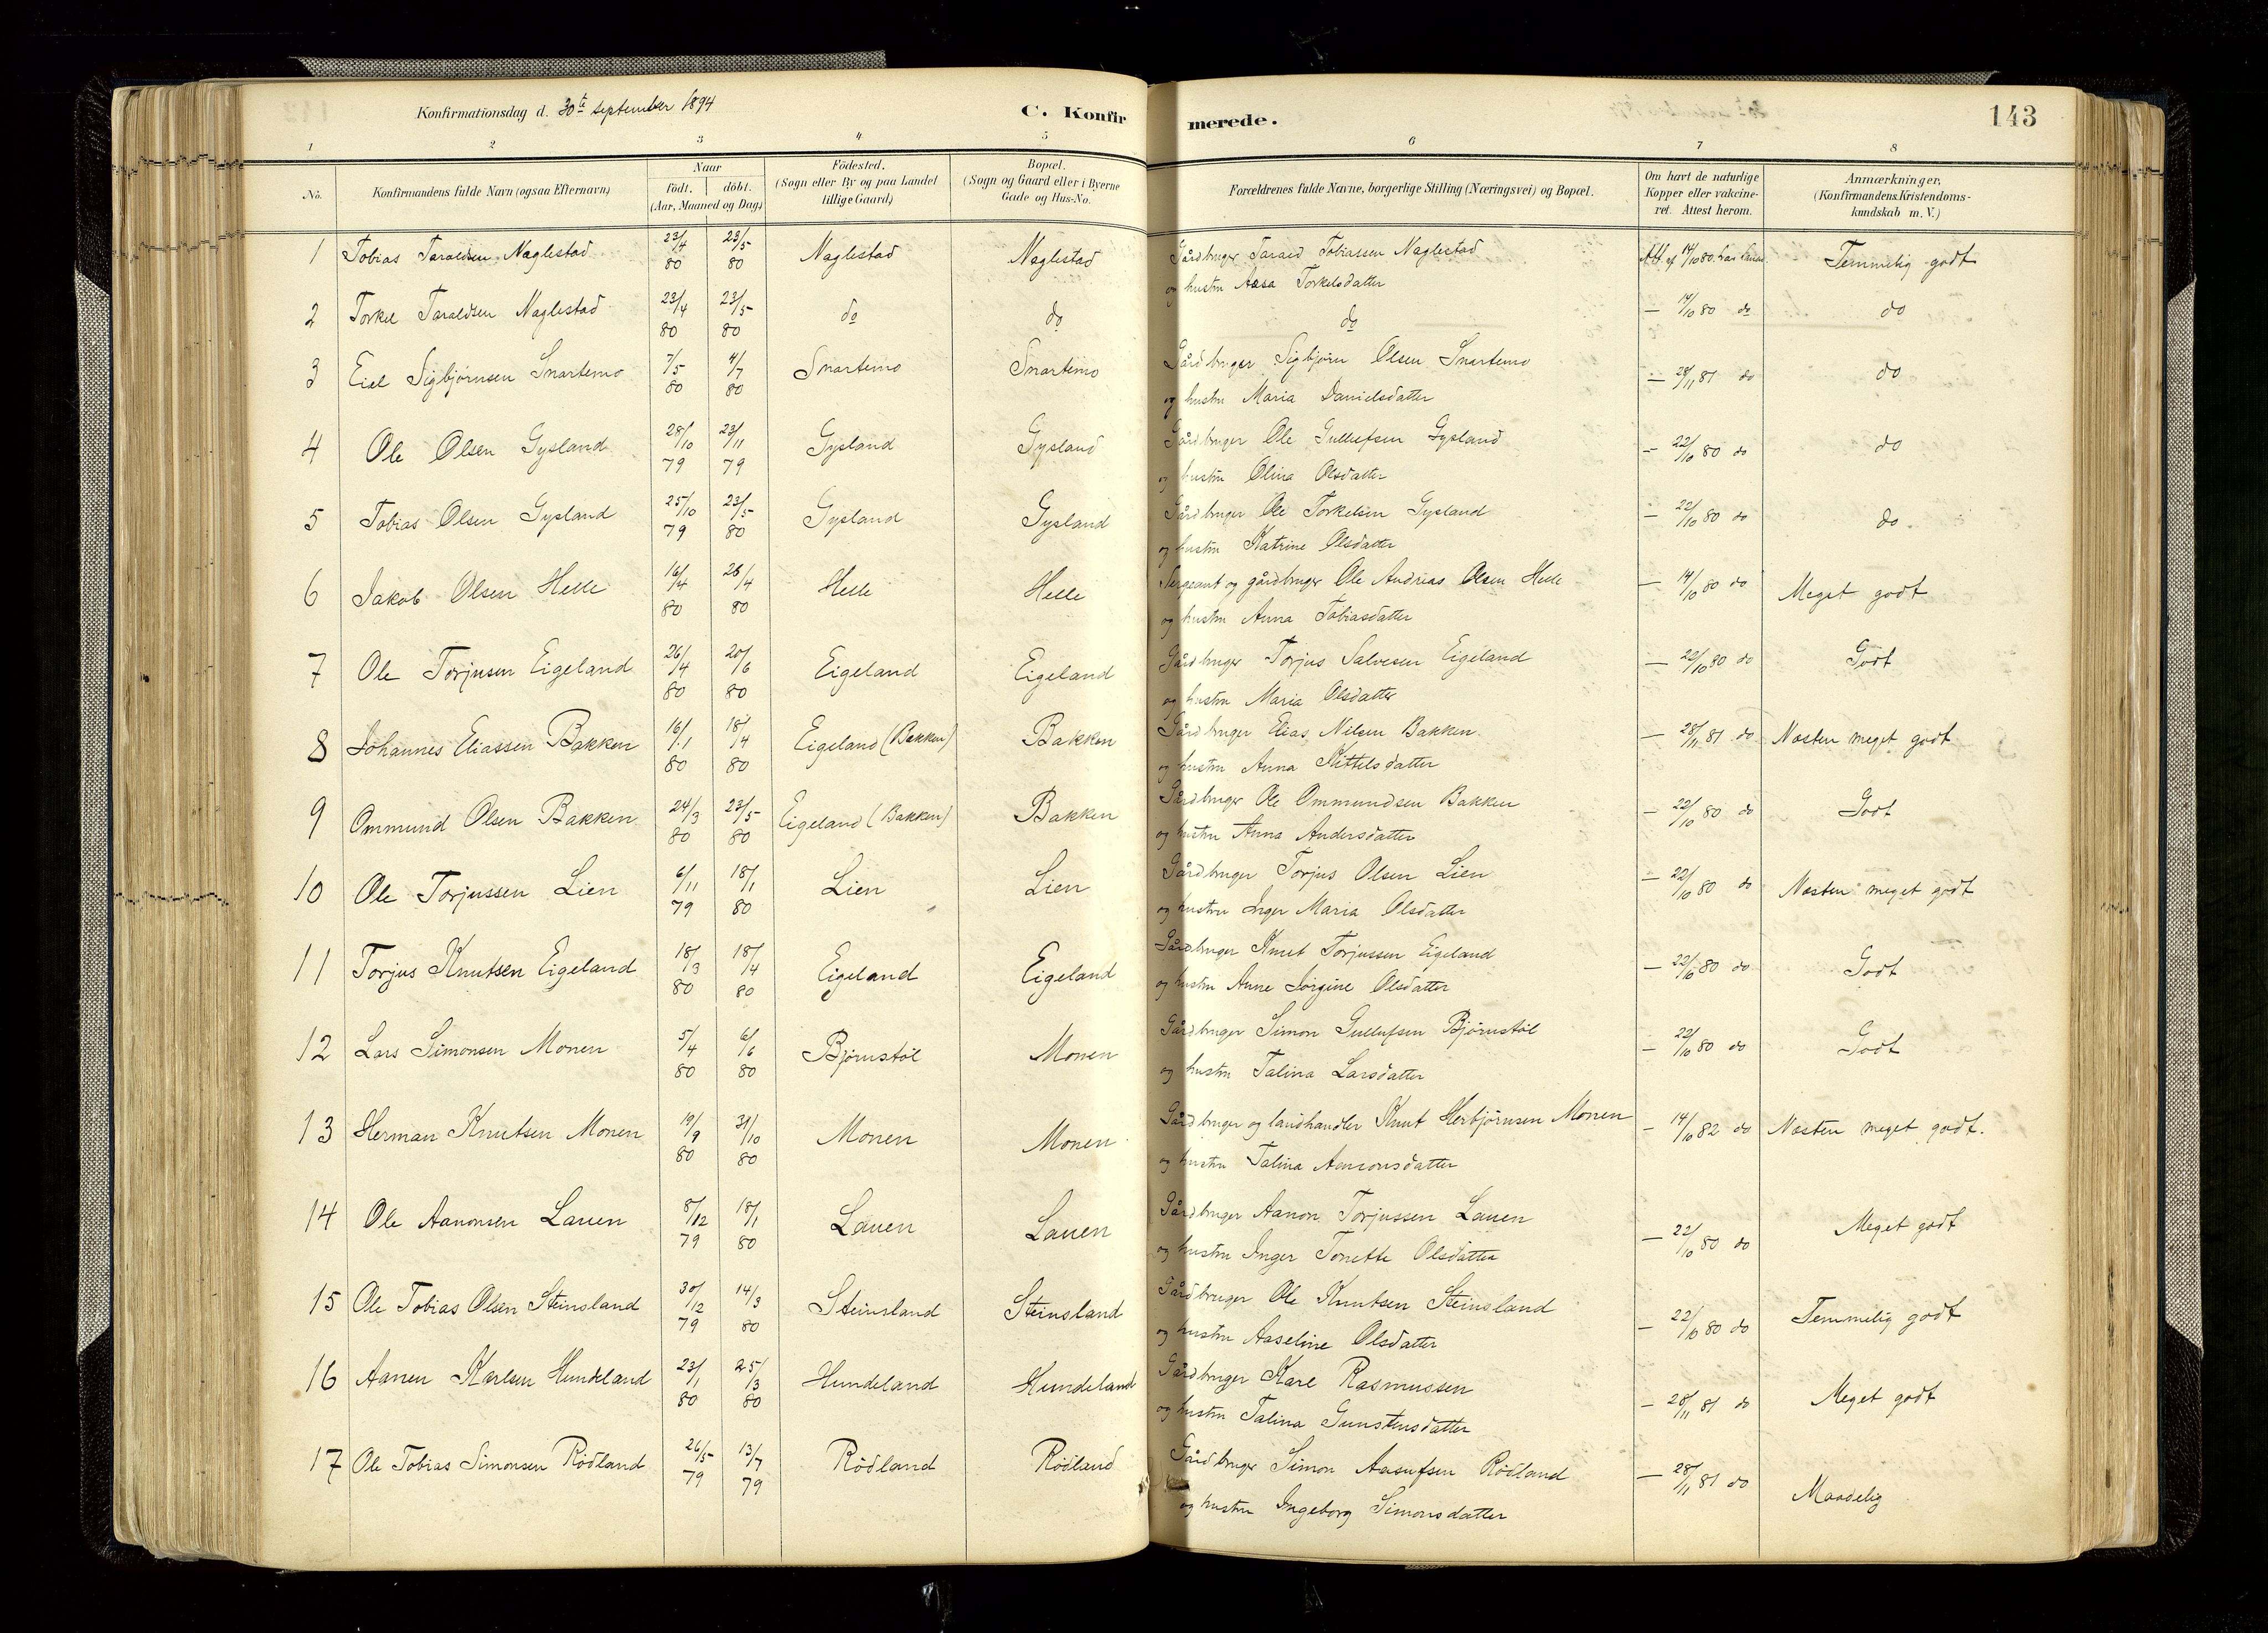 Konfirmationsdag d. 30te september 1894
C. Konfirmerede.
143
1 2 3 4 5 6 7 8
No.
Konfirmandens fulde Navn (ogsaa Efternavn)
Naar
födt. döbt.
(Aar, Maaned og Dag)
Födested.
(Sogn eller By og paa Landet
tillige Gaard)
Bopæl.
(Sogn og Gaard eller i Byerne
Gade og Hus-No.
Forældrenes fulde Navne, borgerlige Stilling (Næringsvei) og Bopæl.
Om havt de naturlige
Kopper eller vakcine-
ret. Attest herom.
Anmærkninger,
(Konfirmandens Kristendoms-
kundskab m. V.)
1 Tobias Taraldsen Naglestad 23/4 80 23/5 80 Naglestad Naglestad Gårdbruger Tarald Tobiassen Naglestad Att. af 14/10 80. Temmelig godt
og hustru Aasa Torkelsdatter
2 Torkel Taraldsen Naglestad 23/4 80 23/5 80 do do do — 14/10 80 do do
3 Eiel Sigbjørnsen Snartemo 7/5 80 4/7 80 Snartemo Snartemo Gårdbruger Sigbjørn Olsen Snartemo — 28/11 81 do do
og hustru Maria Danielsdatter
4 Ole Olsen Gysland 28/10 79 23/11 79 Gysland Gysland Gårdbruger Ole Gullufsen Gysland — 22/10 80 do do
og hustru Olina Olsdatter
5 Tobias Olsen Gysland 25/10 79 23/5 80 Gysland Gysland Gårdbruger Ole Torkelsen Gysland — 22/10 80 do do
og hustru Katrine Olsdatter
6 Jakob Olsen Helle 16/4 80 26/4 80 Helle Helle Sergeant og gårdbruger Ole Andreas Olsen Helle — 14/10 80 do Meget godt
og hustru Anna Tobiasdatter
7 Ole Torjusen Eigeland 26/4 80 20/6 80 Eigeland Eigeland Gårdbruger Torjus Salvesen Eigeland — 22/10 80 do Godt
og hustru Maria Olsdatter
8 Johannes Eliassen Bakken 16/1 80 18/4 80 Eigeland (Bakken) Bakken Gårdbruger Elias Nilsen Bakken — 28/11 81 do Næsten meget godt
og hustru Anna Kittelsdatter
9 Ommund Olsen Bakken 24/3 80 23/5 80 Eigeland (Bakken) Bakken Gårdbruger Ole Ommundsen Bakken — 22/10 80 do Godt
og hustru Anna Andersdatter
10 Ole Torjussen Lien 6/11 79 18/1 80 Lien Lien Gårdbruger Torjus Olsen Lien — 22/10 80 do Næsten meget godt
og hustru Inger Maria Olsdatter
11 Torjus Knutsen Eigeland 18/3 80 18/4 80 Eigeland Eigeland Gårdbruger Knut Torjussen Eigeland — 22/10 80 do Godt
og hustru Anne Jørgine Olsdatter
12 Lars Simonsen Monen 5/4 80 6/6 80 Bjørnstøl Monen Gårdbruger Simon Gullufsen Bjørnstøl — 22/10 80 do Godt
og hustru Talina Larsdatter
13 Herman Knutsen Monen 19/9 80 31/10 80 Monen Monen Gårdbruger og landhandler Knut Herbjørnsen Monen — 14/10 82 do Næsten meget godt.
og hustru Talina Aanonsdatter
14 Ole Aanonsen Lauen 8/12 79 18/1 80 Lauen Lauen Gårdbruger Aanon Torjussen Lauen — 22/10 80 do Meget godt
og hustru Inger Tonette Olsdatter
15 Ole Tobias Olsen Steinsland 30/12 79 14/3 80 Steinsland Steinsland Gårdbruger Ole Knutsen Steinsland — 22/10 80 do Temmelig godt
og hustru Aaseline Olsdatter
16 Aanen Karlsen Hundeland 23/1 80 25/3 80 Hundeland Hundeland Gårdbruger Karl Rasmussen — 28/11 81 do Meget godt
og hustru Talina Gunstensdatter
17 Ole Tobias Simonsen Rödland 26/5 79 13/7 79 Rödland Rödland Gårdbruger Simon Aasulfsen Rödland — 28/11 81 do Maadelig
og hustru Ingeborg Simonsdatter